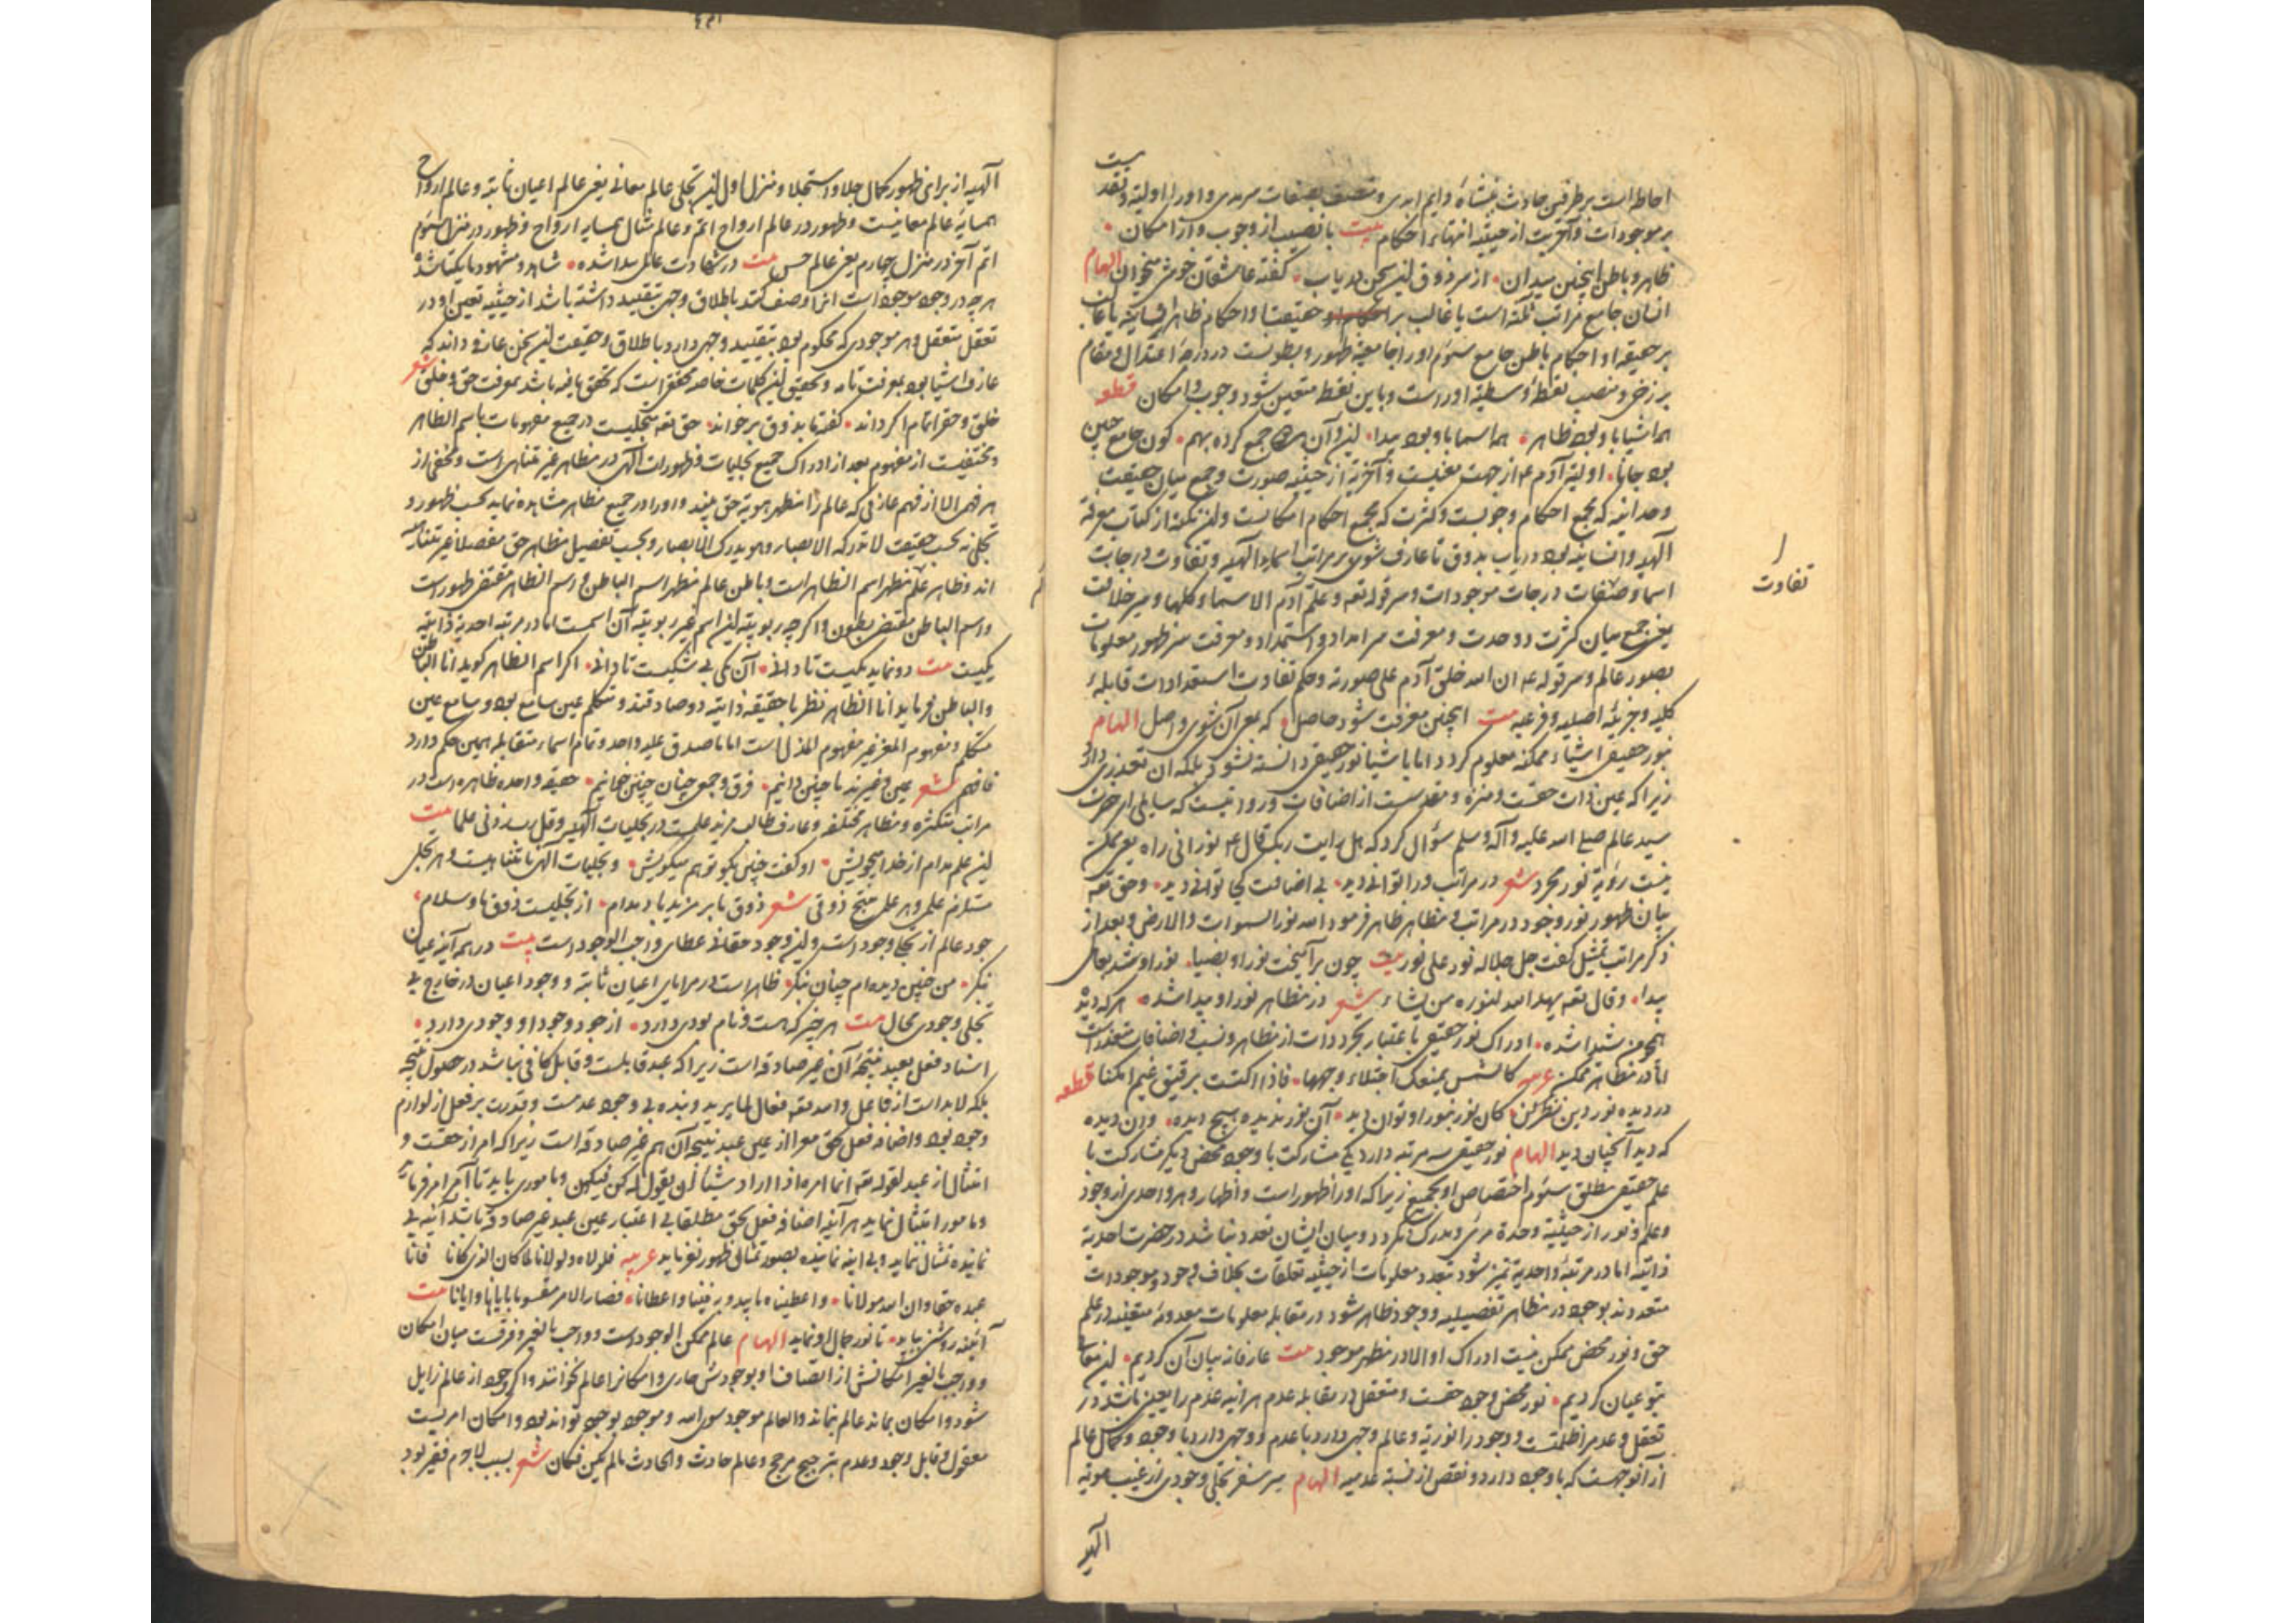 احاطه است بر طرفین حادث دایم ابدی و متصف بصفات سرمدی و او را اولیة و تقد
بر موجودات و آخریت از حیثیة انتهاء احکام بیت با نصیب از وجوب و از امکان
ظاهر و باطن اینچنین میدان از سر ذوق این سخن دریاب گفته عاشقان خوش میخوان الهام
انسان جامع مراتب ثلثه است یا غالب بر احکام حقیقت و احکام ظاهر یا غالب
بر حقیقة او احکام باطن جامع سئوم او را جامعیة ظهور و بطونست در درجه اعتدال و مقام
برزخی و منصب نقطه وسطیة او راست و باین نقطه متعین شود وجوب و امکان قطعه
همه اشیا باو بود ظاهر همه اسما باو بود پیدا این و آن هر دو جمع کرده بهم کون جامع چنین
بود جانا اولیة آدم ع از جهت معنیست و آخریة از حیثیة صورت و جمع میان حقیقت
وحدانیة که مجمع احکام وجوبست و کثرت که مجمع احکام امکانست و این نکته از کتاب معرفة
الهیه و انسانیه بود دریاب بذوق تا عارف شوی بر مراتب اسماء الهیه و تفاوت درجات
تفاوت
اسما و صفات و درجات موجودات و سر قوله تعه و علم آدم الاسماء کلها و سر خلافت
یعنی جمع میان کثرت و وحدت و معرفت سر امداد و استمداد و معرفت سر ظهور معلومات
بصور عالم و سر قوله عه ان الله خلق آدم علی صورته و حکم تفاوت استعدادات قابله
کلیه و جزئیه اصلیه و فرعیه بیت اینچنین معرفت شود حاصل که بقرآن شوی واصل الهام
بنور حقیقی اشیاء ممکنه معلوم گردد اما باشیا نور حقیقی دانسته نشود بلکه ان تعذری دارد
زیرا که عین ذات حقست و منزه و مقدست از اضافات و روایتست که سایلی از حضرت
سید عالم صلی الله علیه و آله و سلم سؤال کرد که هل رایت ربک قال ع نور انی اراه یعنی ممکن
نیست رؤیة نور مجرد شعر در مراتب ورا توانی دید بی اضافت کجا توانی دید و حق تعه
بیان ظهور نور وجود در مراتب و مظاهر ظاهر فرمود الله نور السموات و الارض و بعد از
ذکر مراتب تمثیل گفت جل جلاله نور علی نور بیت چون برآمیخت نور او بضیا نور او شد بما
پیدا و قال تعه یهدی الله لنوره من یشاء شعر در مظاهر نور او پیدا شده هر که دید
همچو من شیدا شده ادراک نور حقیقی باعتبار تجرد ذات از مظاهر و نسب و اضافات متعذر است
اما در مظاهر ممکن عربیه کالشمس یمنعک اجتلاء وجهها فاذا اکتست برقیق غیم امکنا قطعه
در دیده نور دین نظر کن کان نور بنور او توان دید آن نور ندیده هیچ دیده وان دیده
که دید آنچنان دید الهام نور حقیقی سه مرتبه دارد یکی مشارکت با وجود محض دیگر مشارکت با
علم حقیقی مطلق سئوم اختصاص او بجمیع زیرا که او را ظهور است و اظهار و هر واحدی از وجود
و علم و نور از حیثیة وحدة مرئی و مدرک نگردد و میان ایشان تعدد نباشد در حضرت احدیة
ذاتیة اما در مرتبه واحدیة تمیز شود بتعدد معلومات از حیثیة تعلقات بخلاف وجود و موجودات
متعددند بوجود در مظاهر تفصیلیه و وجود ظاهر شود در مقابله معلومات معدومة متعینه در علم
حق و نور محض ممکن نیست ادراک او الا در مظهر موجود بیت عارفانه بیان آن کردیم این معانی
بتو عیان کردیم نور محض وجود حقست و متعقل در مقابله عدم هر آینه عدم را تعین باشد در
تعقل و عدم را ظلمتست و وجود را نوریة و عالم وجهی دارد با عدم و وجهی دارد با وجود و کمال عالم
از آنوجهست که با وجود دارد و نقص از نسبة عدمیه الهام سر سفر تجلی وجودی از غیب هویة
الهیه
الهیه از برای ظهور کمال جلا و استجلا و منزل اول این تجلی عالم معانی یعنی عالم اعیان ثابته و عالم ارواح
همسایه عالم معانیست و ظهور در عالم ارواح اتم و عالم مثال همسایه ارواح و ظهور در منزل سئوم
اتم آخر در منزل چهارم یعنی عالم حس بیت در شهادت عالمی پیدا شده شاهد و مشهود ما یکتا شده
هر چه در وجود موجود است انرا وصف کنند باطلاق وجهی بتقیید داشته باشد از حیثیة تعین او در
تعقل متعقل و هر موجودی که محکوم بود بتقیید وجهی دارد باطلاق و حقیقت این سخن عارف داند که
عارف اشیا بود بمعرفت تامه و تحقیق این کلمات خاصه محققی است که تحقق یافته باشد بمعرفت حق و خلق شعر
خلق و حق را تمام اگر داند گفته ما بذوق برخواند حق تعه متجلیست در جمیع مفهومات باسم الظاهر
و مختفیست از مفهوم بعد از ادراک جمیع تجلیات و ظهورات الهی در مظاهر غیر متناهی است و مخفی از
هر فهمی الا از فهم عارفی که عالم را مظهر هویة حق بیند و او را در جمیع مظاهر مشاهده نماید بحسب ظهور و
تجلی نه بحسب حقیقت لا تدرکه الابصار و هو یدرک الابصار و بحسب تفصیل مظاهر حق مفصلا غیر متناهیه
اند و ظاهر عالم مظهر اسم الظاهر است و باطن عالم مظهر اسم الباطن و اسم الظاهر مقتضی ظهور است
و اسم الباطن مقتضی بطون و اگر چه ربوبیة این اسم غیر ربوبیة آن اسمست اما در مرتبه احدیة ذاتیة
یکیست بیت دو نماید یکیست تا دانی آن یکی بی شکیست تا دانی اگر اسم الظاهر گوید انا الباطن
و الباطن فرماید انا الظاهر نظر با حقیقة ذاتیة دو صادقند و متکلم عین سامع بود و سامع عین
متکلم و مفهوم المعز غیر مفهوم المذل است اما ما صدق علیه واحد و تمام اسماء متقابله همین حکم دارد
فافهم شعر عین و غیرند ما چنین دانیم فرق و جمعی چنان چنین خوانیم حقیقة واحده ظاهره است در
مراتب متکثره و مظاهر مختلفه و عارف طالب مزید علمست در تجلیات الهیه و قل رب زدنی علما بیت
این علم مدام از خدا میجویش او گفت چنین بگو تو هم میگویش و تجلیات الهی نامتناهیست و هر تجلی
مستلزم علمی و هر علمی منتج ذوقی شعر ذوق ما بر مزید باد مدام از تجلیست ذوق ما و سلام
جود عالم از تجلی وجود است و این وجود حقانی عطای واجب الوجود است بیت در همه آینه عیان
بنگر من چنین دیده ام چنان بنگر ظاهر است در مرایای اعیان ثابته و وجود اعیان در خارج بی
تجلی وجودی محال بیت هر چیز که هست و نام بودی دارد از جود وجود او وجودی دارد
اسناد فعل بعبد نتیجه آن غیر صادقه است زیرا که عبد قابلست و قابل کافی نباشد در حصول نتیجه
بلکه لابد است از فاعل و الله تعه فعال لما یرید و بنده بی وجود عدمست و قدرت بر فعل از لوازم
وجود بود و اضافه فعل بحق معرا از عین عبد نتیجه آن هم غیر صادقه است زیرا که امر از حقست و
امتثال از عبد لقوله تعه انما امره اذا اراد شیئا ان یقول له کن فیکون و ماموری باید تا آمر امر فرماید
و مامور امتثال نماید هر آینه اضافه فعل بحق مطلقا بی اعتبار عین عبد غیر صادقه باشد آینه بی
نماینده تمثال ننماید و بی آینه نماینده بصورت تمثالی ظهور نفرماید عربیه فلولاه و لولانا لما کان الذی کانا فانا
عبده حقا و ان الله مولانا و اعطیناه ما یبدو به فینا و اعطانا فصار الامر مقسوما بایاه و ایانا بیت
آینه روشنی بباید تا نور جمال او نماید الهام عالم ممکن الوجود است و واجب بالغیر و فرقست میان امکان
و واجب بالغیر امکانش از اتصاف او بوجودش عاری و امکانرا عالم نخوانند و اگر وجود از عالم زایل
شود و امکان بماند عالم نماند و العالم موجود سوی الله و موجود بوجود تواند بود و امکان امریست
معقول و قابل وجود و عدم بترجیح مرجح و عالم حادث و الحادث ما لم یکن فکان شعر بسبب لاجرم فقیر بود